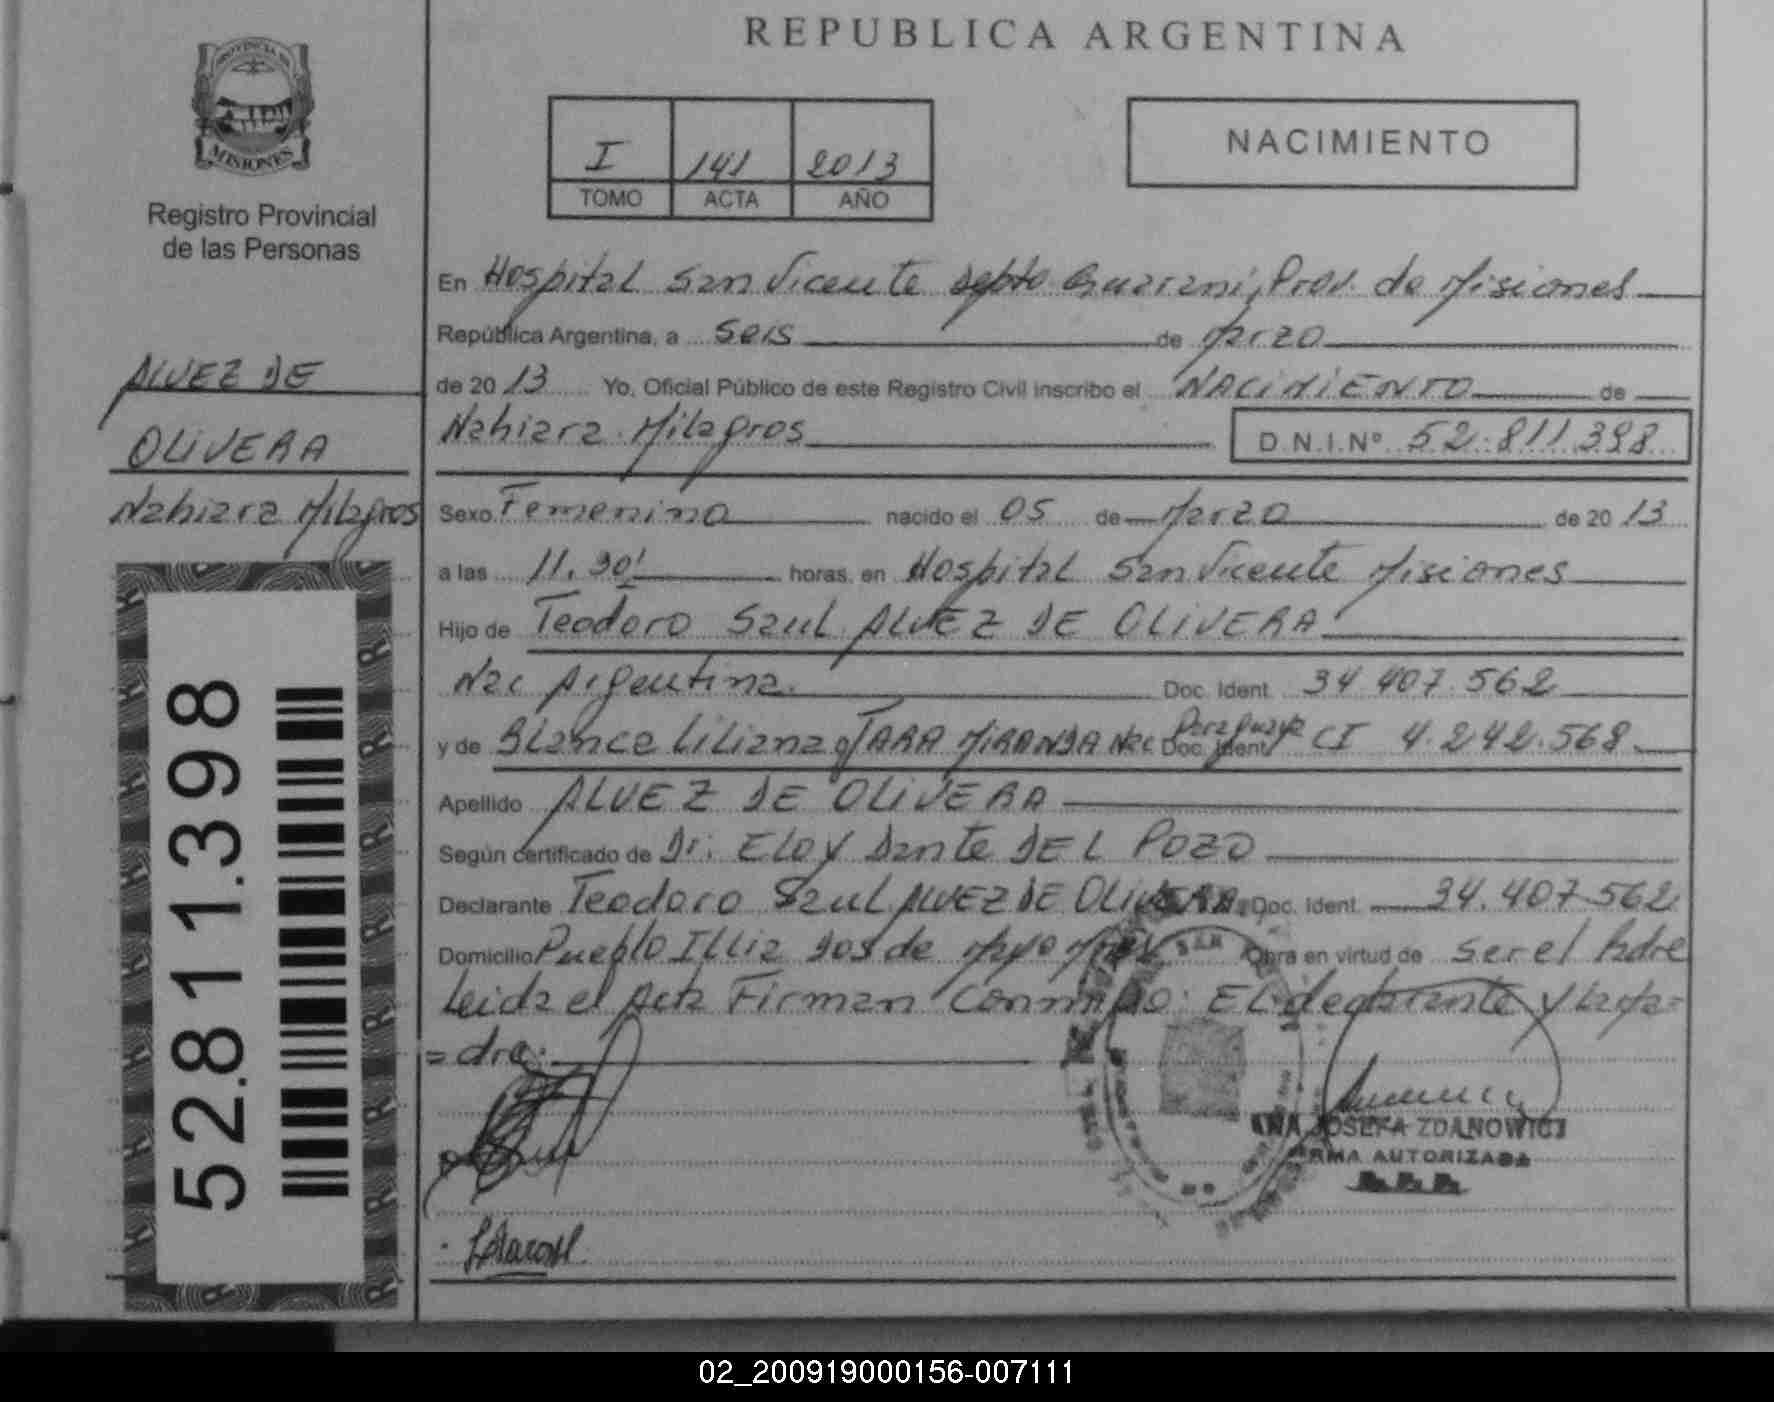 REPUBLICA ARGENTINA
PROVINCIA DE
MISIONES
Registro Provincial
de las Personas
I 141 2013
TOMO ACTA AÑO
NACIMIENTO
En Hospital San Vicente depto Guarani, Prov. de Misiones
República Argentina, a seis de Marzo
de 2013 Yo, Oficial Público de este Registro Civil inscribo el NACIMIENTO de
Nahiara Milagros D.N.I.Nº 52.811.398
ALVEZ DE
OLIVERA
Nahiara Milagros
Sexo Femenino nacido el 05 de Marzo de 2013
a las 11.30' horas, en Hospital San Vicente Misiones
Hijo de Teodoro Saul ALVEZ DE OLIVERA
Nac Argentina. Doc. Ident. 34.407.562
y de Blanca Liliana JARA MIRANDA Nac Paraguaya Doc. Ident. CI 4.242.568
Apellido ALVEZ DE OLIVERA
Según certificado de Dr: ELOY Dante DEL POZO
Declarante Teodoro Saul ALVEZ DE OLIVERA Doc. Ident. 34.407.562
Domicilio Pueblo Illia Dos de Mayo Mnes Obra en virtud de ser el Padre
Leida el Acta Firman Conmigo: El declarante y la Ma=
=dre.
52.811.398
JOSEFA ZDANOWICZ
FIRMA AUTORIZADA
02_200919000156-007111